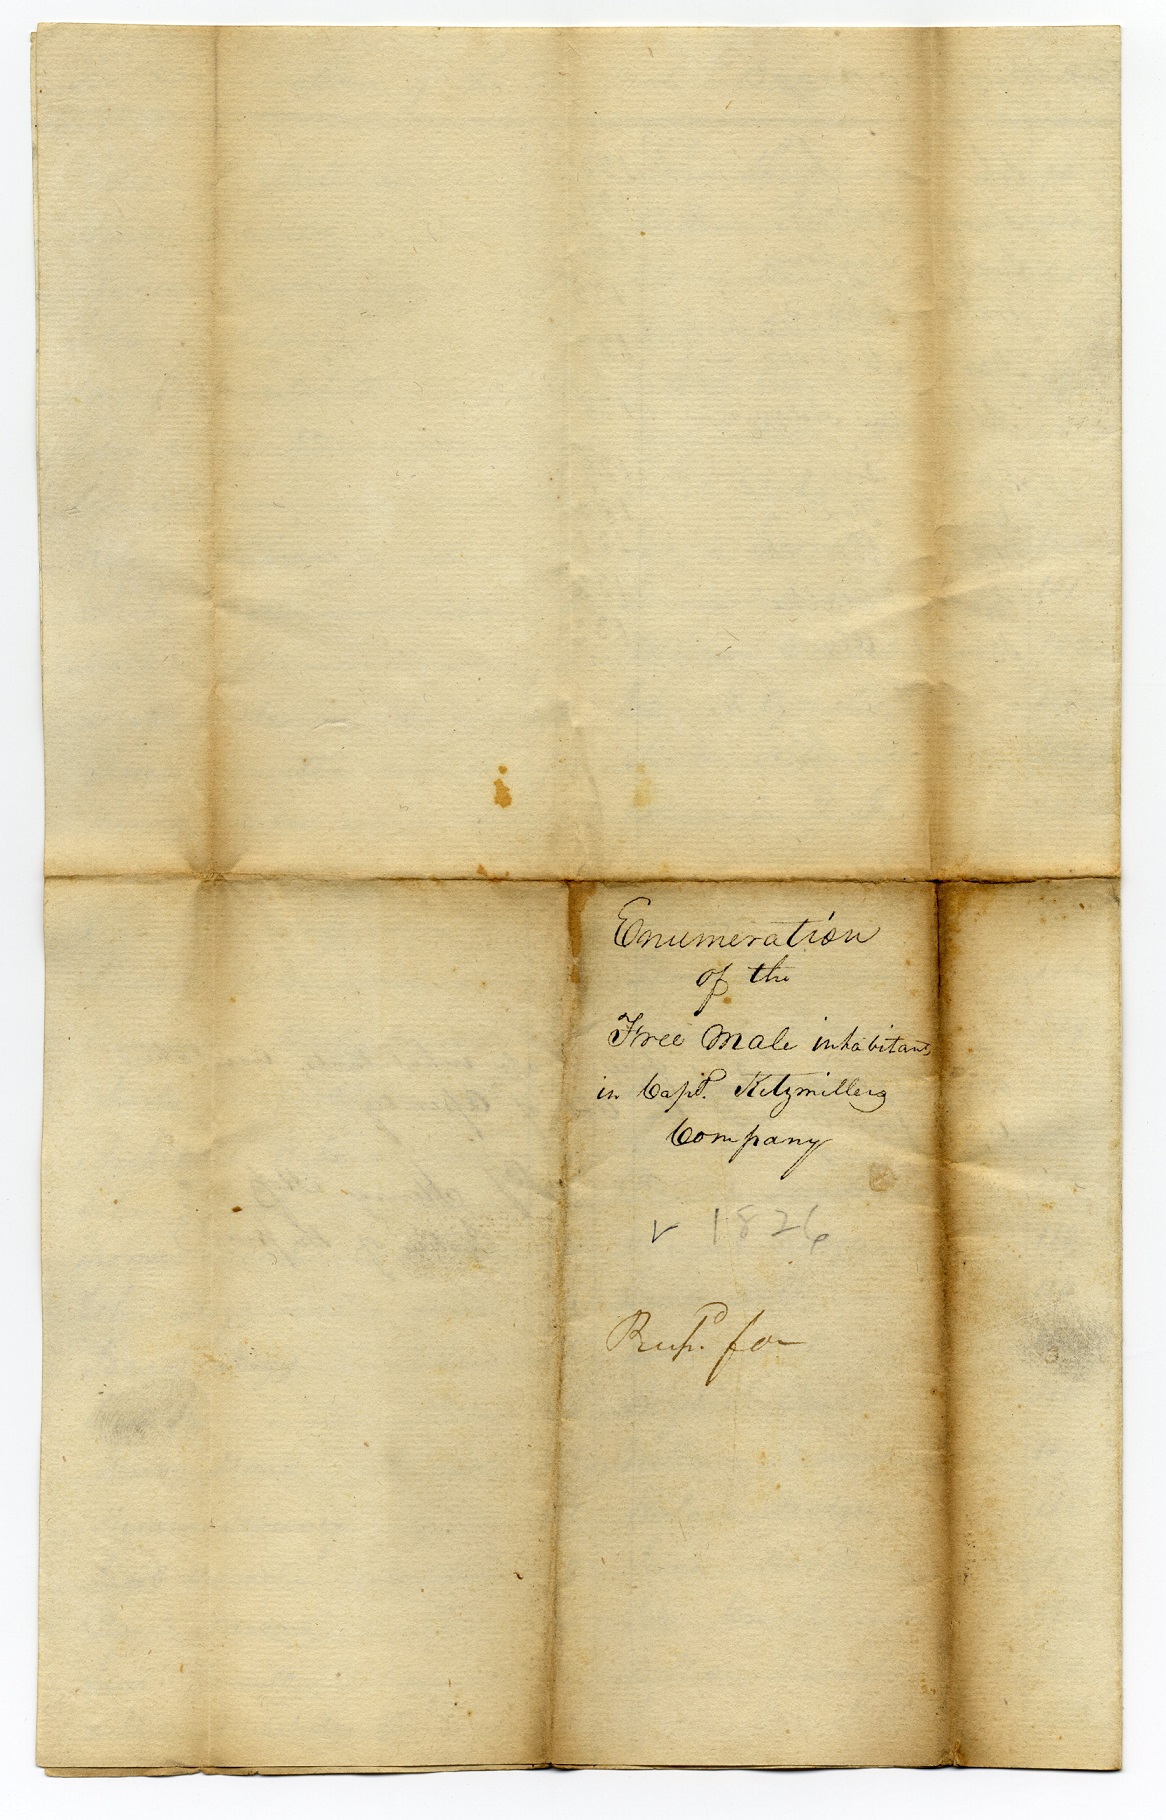 Enumeration
of the
Free Male inhabitants
in Capt. Kitzmillers
Company
✓ 1826
for